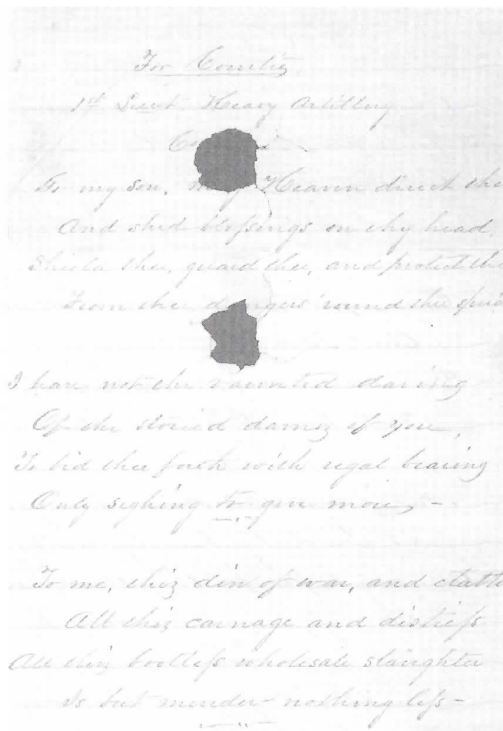 For
1st Lieut. Heavy Artillery
my son, Heaven direct
And shed blessings on thy head,
thee, guard thee, and protect
From the dangers 'round thee
I have not the vaunted daring
Of the storied dames of
To bid thee forth with regal bearing
Only sighing to give more, -
To me, this din of war, and
All this carnage and distress
All this bootless wholesale slaughter
Is but murder - nothing less -